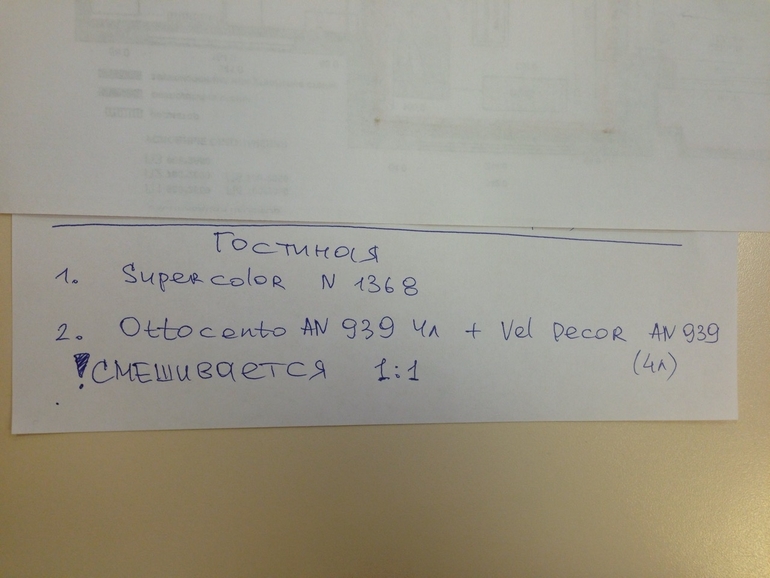 Гостиная
1. Supercolor N 1368
2. Ottocento AN 939 4л + Vel Decor AN 939
(4л)
! СМЕШИВАЕТСЯ 1:1